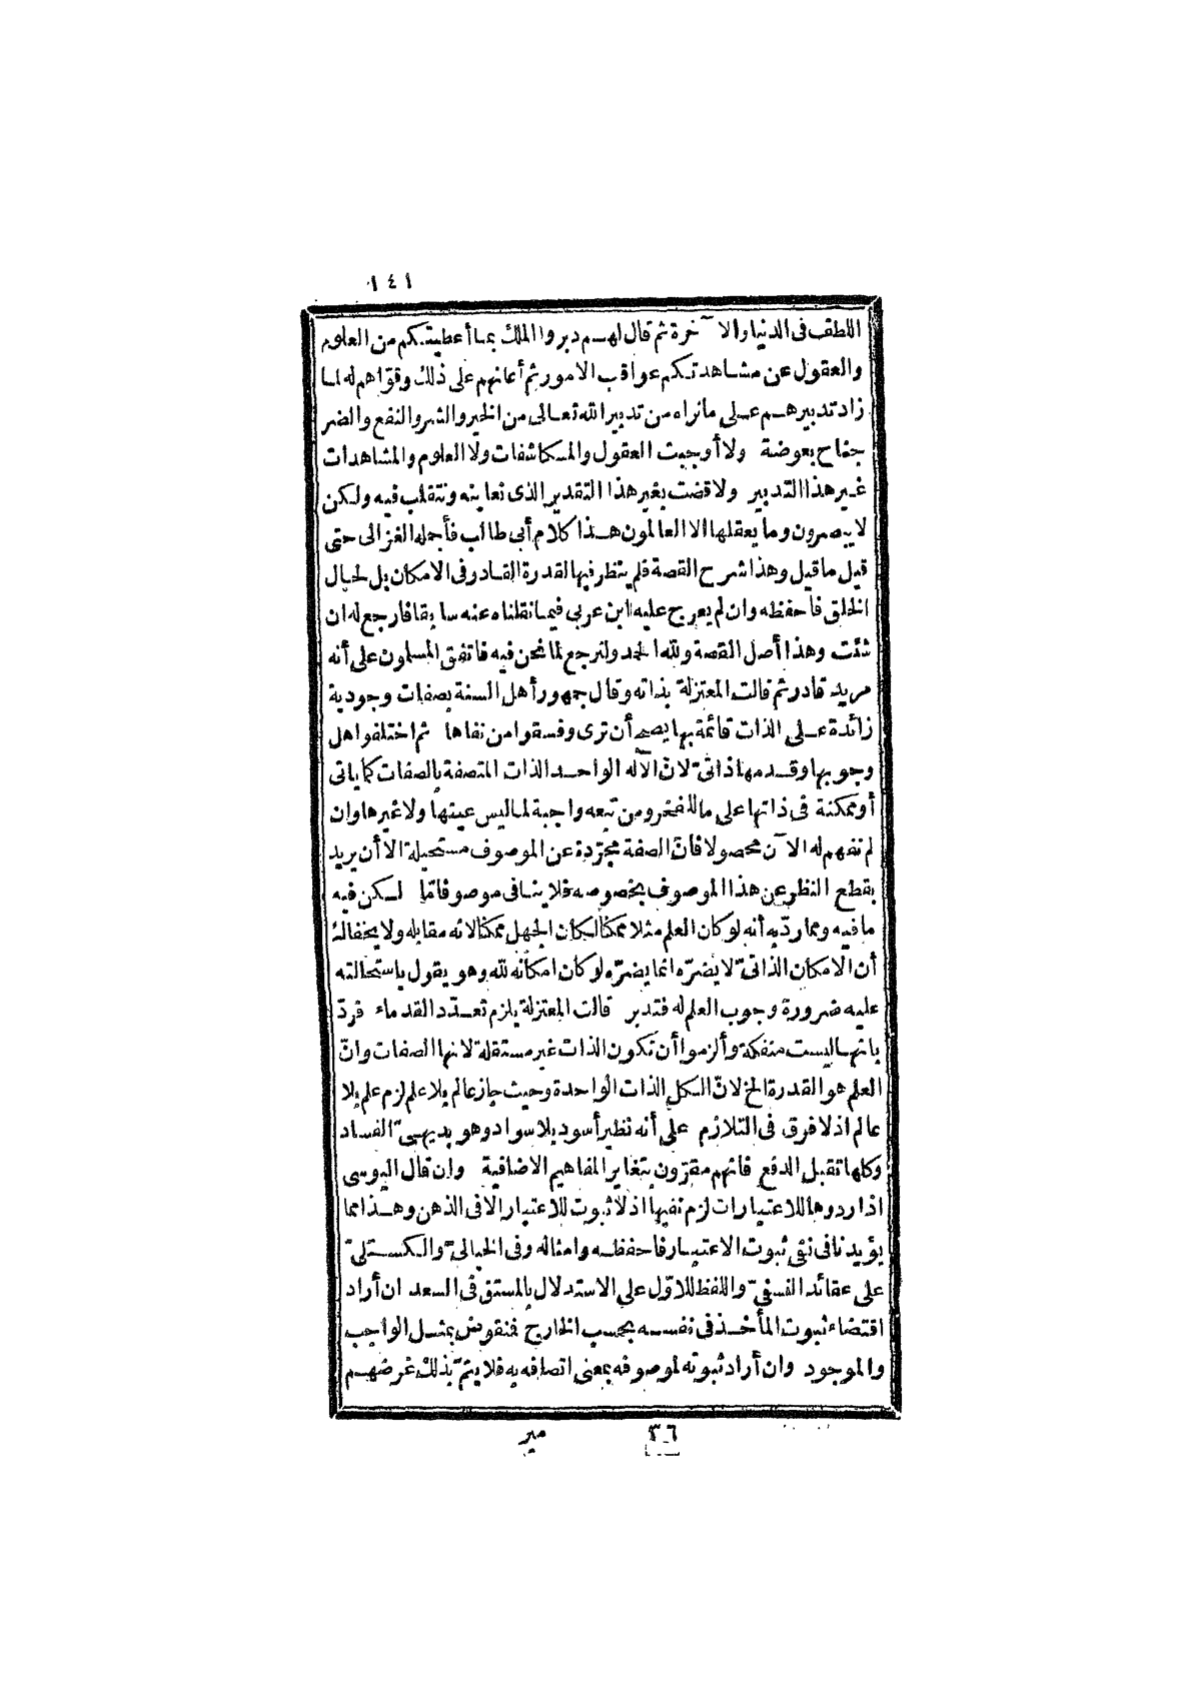 ١٤١
اللطف فى الدنيا والآخرة ثم قال لهم دبروا الملك بما أعطيتكم من العلوم
والعقول عن مشاهدتكم عواقب الامور ثم أعانهم على ذلك وقواهم له لما
زاد تدبيرهم على ما نراه من تدبير الله تعالى من الخير والشر والنفع والضر
جناح بعوضة ولا أوجبت العقول والمكاشفات ولا العلوم والمشاهدات
غير هذا التدبير ولا قضت بغير هذا التقدير الذى نعاينه ونتقلب فيه ولكن
لا يبصرون وما يعقلها الا العالمون هذا كلام أبى طالب فأجمله الغزالى حتى
قيل ما قيل وهذا شرح القصة فلم ينظر فيها لقدرة القادر وفى الامكان بل لحال
الخلق فاحفظه وان لم يعرج عليه ابن عربى فيما نقلناه عنه سابقا فارجع له ان
شئت وهذا أصل القصة ولله الحمد ولنرجع لما نحن فيه فاتفق المسلمون على أنه
مريد قادر ثم قالت المعتزلة بذاته وقال جمهور أهل السنة بصفات وجودية
زائدة على الذات قائمة بها يصح أن ترى وفسقوا من نفاها ثم اختلفوا هل
وجوبها وقدمها ذاتىّ لانّ الآله الواحد الذات المتصفة بالصفات كما ياتى
أو ممكنة فى ذاتها على ما للفخر ومن تبعه واجبة لما ليس عينها ولا غيرها وان
لم نفهم له الآن محصولا فانّ الصفة مجرّدة عن الموصوف مستحيلة الا أن يريد
بقطع النظر عن هذا الموصوف بخصوصه فلا ينافى موصوفا مّا لكن فيه
ما فيه ومما ردّ به أنه لو كان العلم مثلا ممكنا لكان الجهل ممكنا لانه مقابله ولا يخفالك
أن الامكان الذاتىّ لا يضرّه انما يضرّه لو كان امكانه لله وهو يقول باستحالته
عليه ضرورة وجوب العلم له فتدبر قالت المعتزلة يلزم تعدّد القدماء فردّ
بانها ليست منفكة وألزموا أن تكون الذات غير مستقلة لانها الصفات وانّ
العلم هو القدرة الخ لانّ الكل الذات الواحدة وحيث جاز عالم بلا علم لزم علم بلا
عالم اذ لا فرق فى التلازم على أنه نظير أسود بلا سواد وهو بديهىّ الفساد
وكلها تقبل الدفع فانهم مقرّون بتغاير المفاهيم الاضافية وان قال اليوسى
اذا ردوها للاعتبارات لزم نفيها اذ لا ثبوت للاعتبار الا فى الذهن وهذا مما
يؤيدنا فى نفى ثبوت الاعتبار فاحفظه وامثاله وفى الخيالىّ والكستلىّ
على عقائد النسفىّ واللفظ للاوّل على الاستدلال بالمشتق فى السعد ان أراد
اقتضاء ثبوت المأخذ فى نفسه بحسب الخارج فمنقوض بمثل الواجب
والموجود وان أراد ثبوته لموصوفه بمعنى اتصافه به فلا يتمّ بذلك غرضهم
٣٦ مير